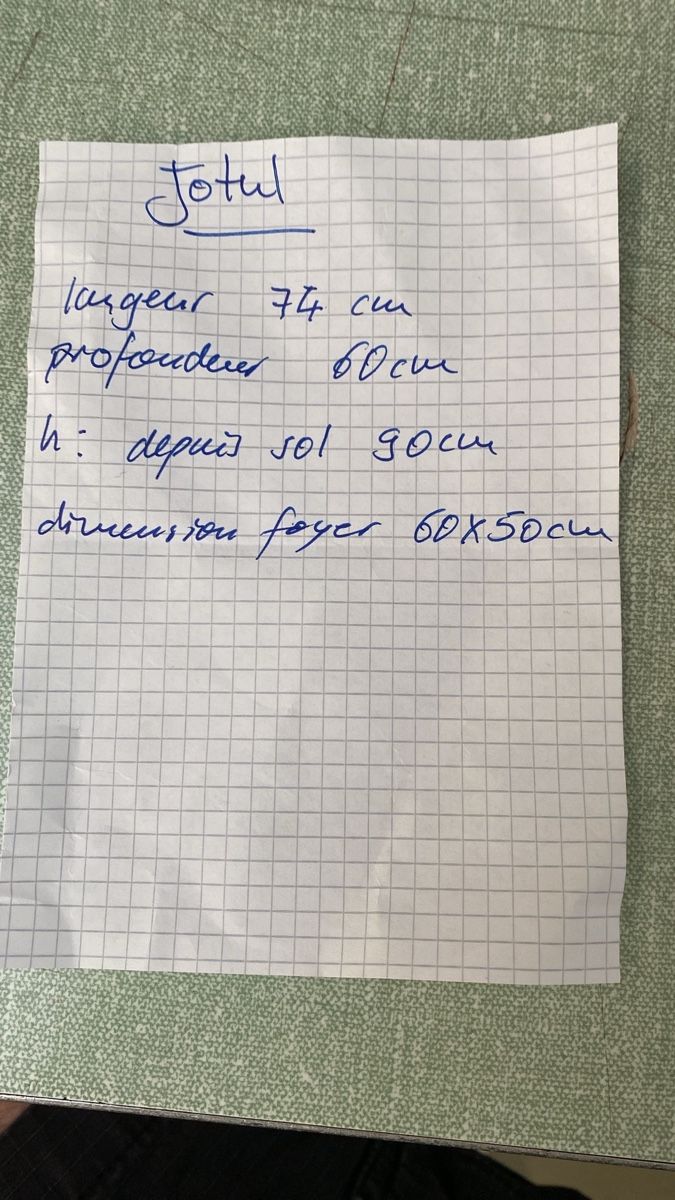 Jotul
largeur 74 cm
profondeur 60cm
h: depuis sol 90cm
dimension foyer 60x50cm